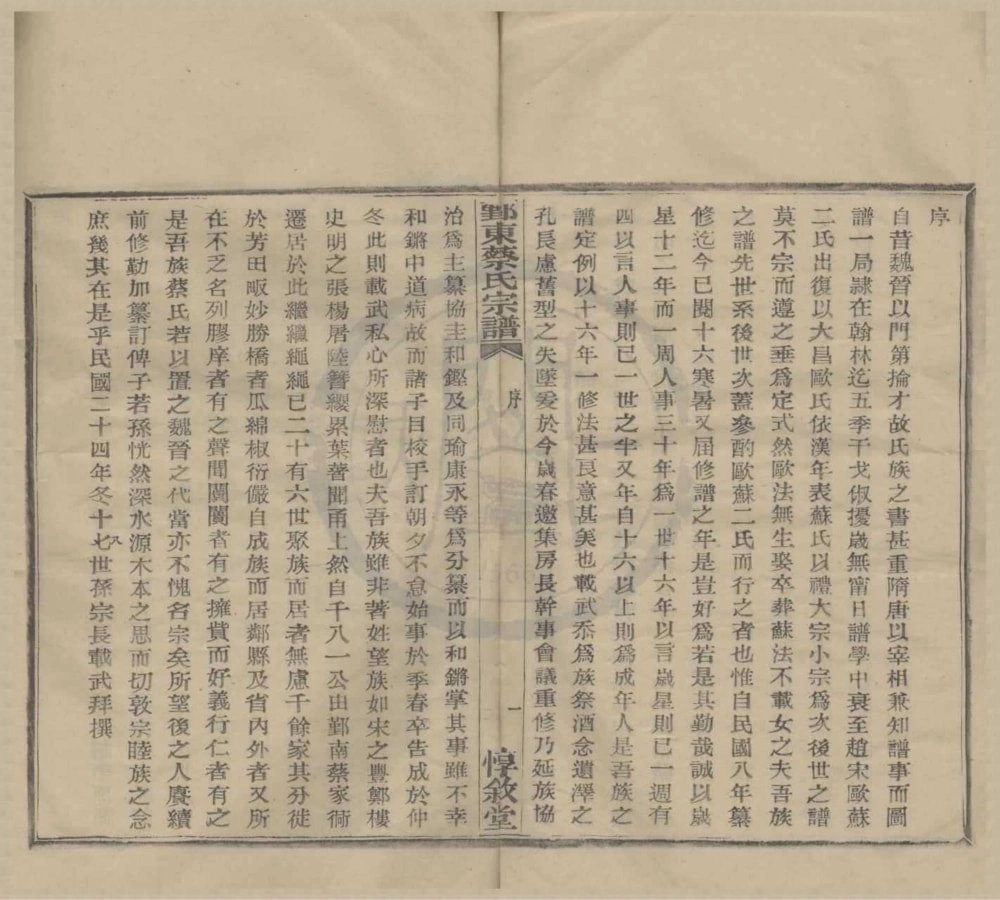 序
自昔魏晉以門第掄才故氏族之書甚重隋唐以宰相兼知譜事而圖
譜一局隸在翰林迄五季干戈俶擾歲無甯日譜學中衰至趙宋歐蘇
二氏出復以大昌歐氏依漢年表蘇氏以禮大宗小宗爲次後世之譜
莫不宗而遵之垂爲定式然歐法無生娶卒葬蘇法不載女之夫吾族
之譜先世系後世次蓋參酌歐蘇二氏而行之者也惟自民國八年纂
修迄今已閱十六寒暑又屆修譜之年是豈好爲若是其勤哉誠以歲
星十二年而一周人事三十年爲一世十六年以言歲星則已一週有
四以言人事則已一世之半又年自十六以上則爲成年人是吾族之
譜定例以十六年一修法甚良意甚美也載武忝爲族祭酒念遺澤之
孔長慮舊型之失墜爰於今歲春邀集房長幹事會議重修乃延族協
鄞東蔡氏宗譜
序
一
惇敘堂
治爲主纂協圭和鏗及同瑜康永等爲分纂而以和鏘掌其事雖不幸
和鏘中道病故而諸子目校手訂朝夕不怠始事於季春卒告成於仲
冬此則載武私心所深慰者也夫吾族雖非著姓望族如宋之豐鄭樓
史明之張楊屠陸簪纓累葉著聞甬上然自千八一公由鄞南蔡家衕
遷居於此繼繼繩繩已二十有六世聚族而居者無慮千餘家其分徙
於芳田畈妙勝橋者瓜綿椒衍儼自成族而居鄰縣及省內外者又所
在不乏名列膠庠者有之聲聞闤闠者有之擁貲而好義行仁者有之
是吾族蔡氏若以置之魏晉之代當亦不愧名宗矣所望後之人賡續
前修勤加纂訂俾子若孫恍然深水源木本之思而切敦宗睦族之念
庶幾其在是乎民國二十四年冬十七世孫宗長載武拜撰